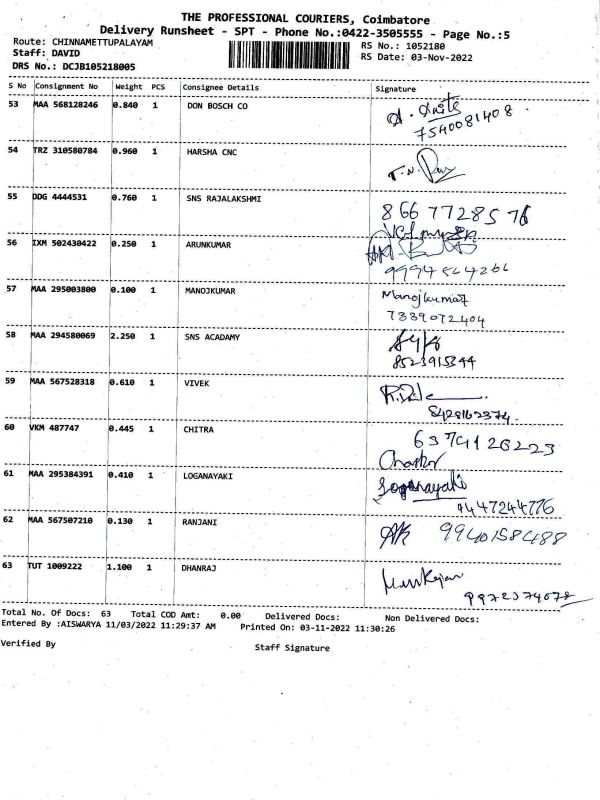 THE PROFESSIONAL COURIERS, Coimbatore
Delivery Runsheet - SPT - Phone No.:0422-3505555 - Page No.:5
Route: CHINNAMETTUPALAYAM
RS No.: 1052180
Staff: DAVID
RS Date: 03-Nov-2022
DRS No.: DCJB105218005
S No Consignment No Weight PCS Consignee Details Signature
53 MAA 568128246 0.840 1 DON BOSCH CO
7540081408
54 TRZ 310580784 0.960 1 HARSHA CNC
55 DDG 4444531 0.760 1 SNS RAJALAKSHMI
8667728576
56 IXM 502430422 0.250 1 ARUNKUMAR
57 MAA 295003800 0.100 1 MANOJKUMAR Manojkumar
7339072404
58 MAA 294580069 2.250 1 SNS ACADAMY
8523915344
59 MAA 567528318 0.610 1 VIVEK
8428162374
60 VKM 487747 0.445 1 CHITRA
6379126223
61 MAA 295384391 0.410 1 LOGANAYAKI Loganayaki
9447244776
62 MAA 567507210 0.130 1 RANJANI
9940158488
63 TUT 1009222 1.100 1 DHANRAJ
Total No. Of Docs: 63 Total COD Amt: 0.00 Delivered Docs: Non Delivered Docs:
Entered By :AISWARYA 11/03/2022 11:29:37 AM Printed On: 03-11-2022 11:30:26
Verified By Staff Signature